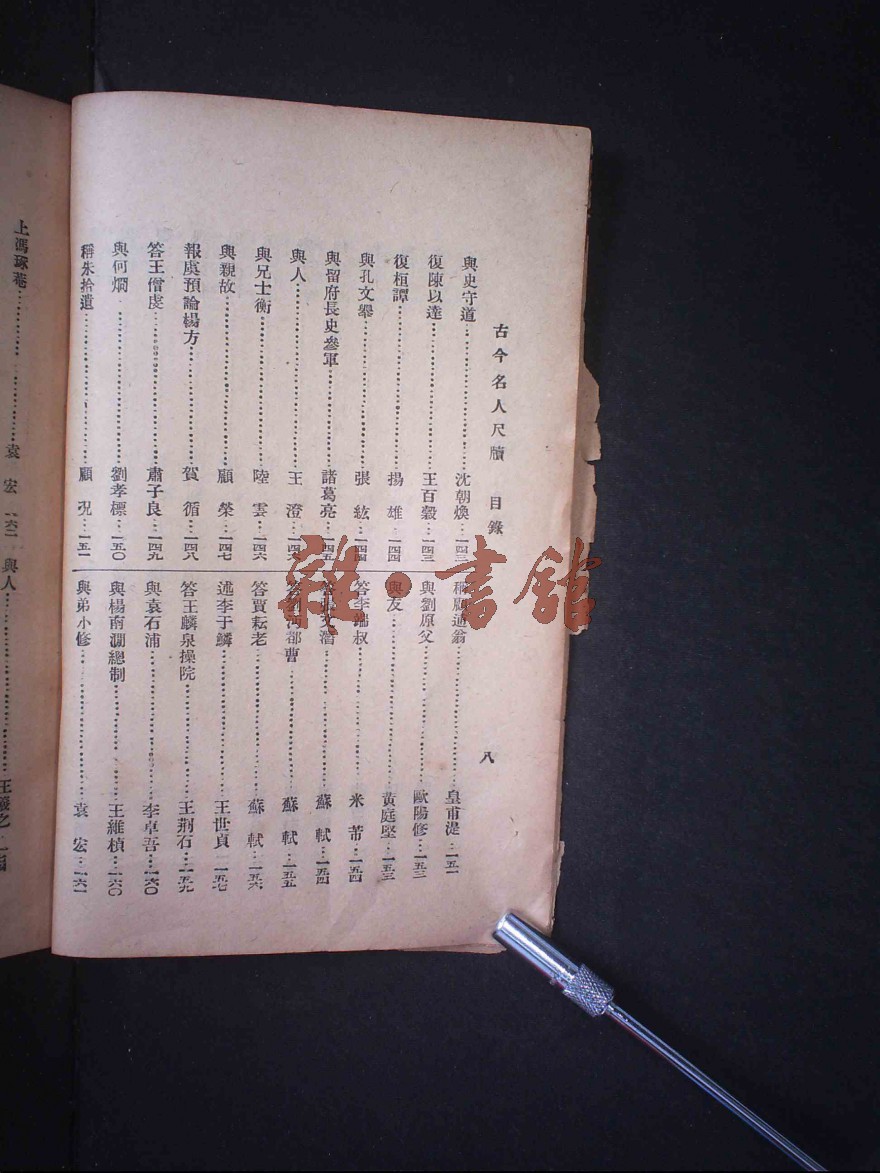 古今名人尺牘 目錄 八
與史守道 沈朝煥 一四三
復陳以達 王百穀 一四三
復桓譚 揚雄 一四四
與孔文舉 張紘 一四四
與留府長史參軍 諸葛亮 一四五
與人 王澄 一四六
與兄士衡 陸雲 一四六
與親故 顧榮 一四七
報虞預論楊方 賀循 一四八
答王僧虔 肅子良 一四九
與何烱 劉孝標 一五〇
稱朱拾遺 顧況 一五一
稱顧逋翁 皇甫湜 一五一
與劉原父 歐陽修 一五三
與友 黃庭堅 一五三
答李端叔 米芾 一五四
答 文潛 蘇軾 一五四
答劉 都曹 蘇軾 一五五
答賈耘老 蘇軾 一五六
述李于鱗 王世貞 一五七
答王麟泉操院 王荊石 一五九
與袁石浦 李卓吾 一六〇
與楊南澗總制 王維楨 一六〇
與弟小修 袁宏 一六一
上馮琢菴 袁宏 一六二
與人 王羲之
雜·書館